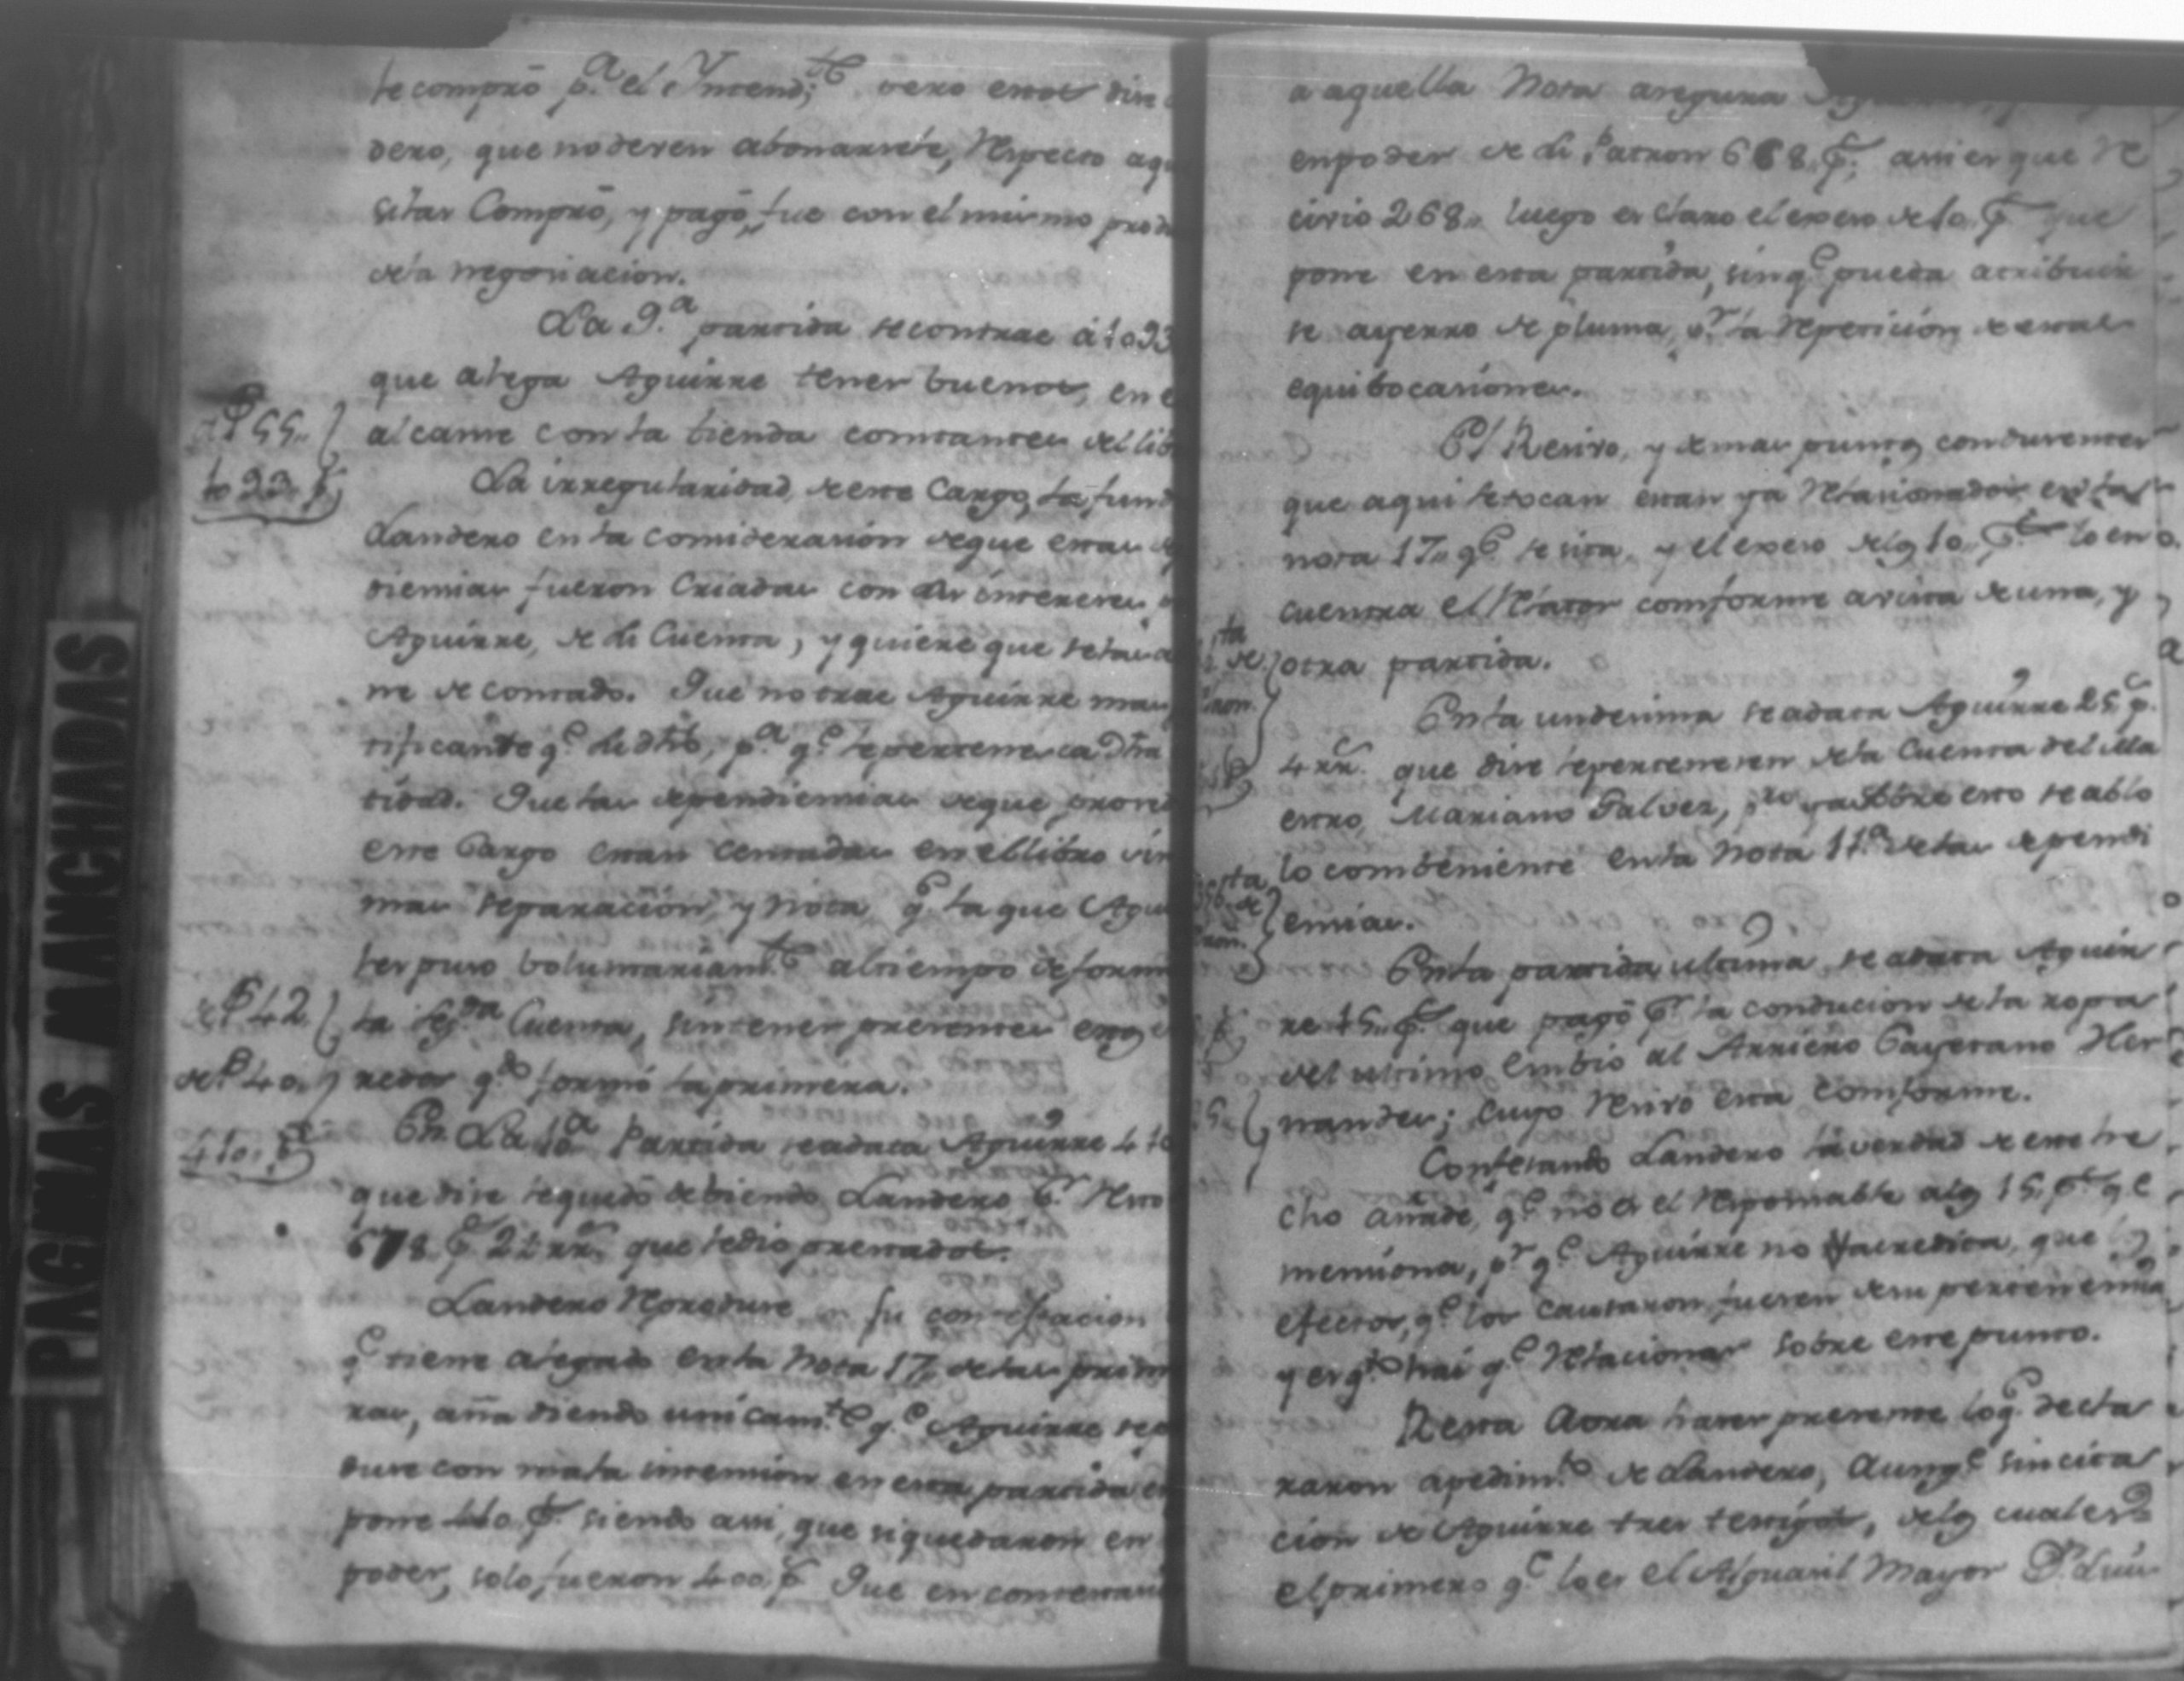 le compró p.a el Yntend.te pero estos dice
dero, que no deven abonarsele, respecto aqu
sitas Compró, y pagó, fue con el mismo prod
dela negociacion.
La 9.a partida se contrae á 1023
que alega Aguirre tener buenos, en e
alcanse con la tienda constantes del lib
La irregularidad de este Cargo, la fund
Landero en la consideracion de que estas
diencias fueron Criadas con los intereses
Aguirre, de su Cuenta, y quiere que selas a
ne de contado. Que no trae Aguirre mas
tificante q.e su dhõ, p.a q.e le pertenesca dha
tidad. Que las dependiencias de que provi
este Cargo estan sentadas en el libro sin
mas separacion, y nota q.e la que Agui
rre puso boluntariam.te al tiempo de form
la seg.da Cuenta, sin tener presentes
redos q.do formó la primera.
En La 10.a Partida se adata Aguirre 410
que dice le quedó debiendo Landero p.r resto
678 p.s 2½ rr.s que le dió prestados.
Landero reproduce en su contestacion
q.e tiene alegado en la Nota 17 de las prim
ras, aña diendo unicam.te q.e Aguirre
duce con mala intencion en esta partida
pone 410 p.s siendo asi, que si quedaron en
poder, solo fueron 400 p.s Que en contestaci
f 55..
1023 p.s
de f 42
de f 40.
410 p.s
PAGINAS MANCHADAS
a aquella Nota asegura
en poder de su Patron 668 p.s asi es que re
civio 268.. luego es claro el exeso de 10 p.s que
pone en esta partida, sin q.e pueda atribuir
se a yerro de pluma, p.r la repeticion de estas
equibocaciones.
El Recivo, y demas puntos conducentes
que aqui se tocan estan ya relacionados en la
nota 17.. q.e se cita, y el exeso delos 10 p.s lo en
cuentra el relator conforme a vista de una, y
otra partida.
En la undecima se adata Aguirre 25 p.s
4 rr.s que dice le pertenecen dela Cuenta del Ma
estro Mariano Galvez, sobre esto se ablo
lo combeniente en la Nota 11.a de las dependi
encias.
En la partida ultima se adata Aguir
re 15.. p.s que pagó p.r la conducion de la ropa
del ultimo Embio al Arriero Cayetano Her
nandes; cuyo recivo esta conforme.
Confesando Landero la verdad de este he
cho añade, q.e no es el responsable alos 15 p.s q.e
menciona, p.r q.e Aguirre no acredita, que los
efectos, q.e los causaron, fuesen de su pertenencia
y es q.to hai q.e relacionar sobre este punto.
Resta Aora haser presente lo q.e decla
raron apedim.to de Landero, Aunq.e sin cita
cion de Aguirre tres testigos, delos cuales
el primero q.e lo es el Alguasil Mayor D.n Luis